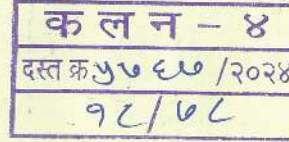 क ल न - ४
दस्त क्र ५७६७ /२०२४
१८/७८